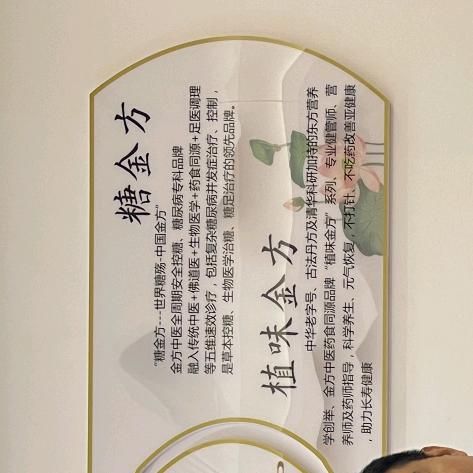 糖金方
“糖金方---世界糖殇-中国金方”
金方中医全周期安全控糖、糖尿病专科品牌
融入传统中医+佛道医+生物医学+药食同源+足医调理
等五维速效诊疗，包括复杂糖尿病并发症治疗、控制，
是草本控糖、生物医学治糖、糖足治疗的领先品牌。
植味金方
中华老字号、古法丹方及清华科研加持的东方营养
学创举、金方中医药食同源品牌“植味金方”系列、专业健管师、营
养师及药师指导，科学养生、元气恢复，不打针、不吃药改善亚健康
，助力长寿健康